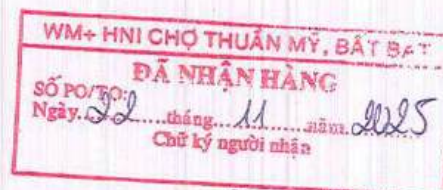 WM+ HNI CHỢ THUẦN MỸ, BẤT BẠT
ĐÃ NHẬN HÀNG
SỐ PO/TO:
Ngày.22......tháng..11......năm.2025
Chữ ký người nhận